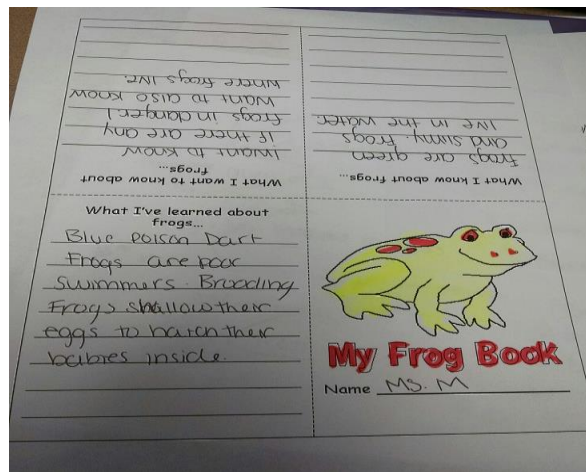 What I want to know about
frogs...
I want to know
If there are any
frogs in danger. I
want to also know
where frogs live.
What I know about frogs...
frogs are green
and slimy. Frogs
live in the water.
What I've learned about
frogs...
Blue Poison Dart
Frogs are poor
swimmers. Brooding
Frogs swallow their
eggs to hatch their
babies inside.
My Frog Book
Name Ms. M